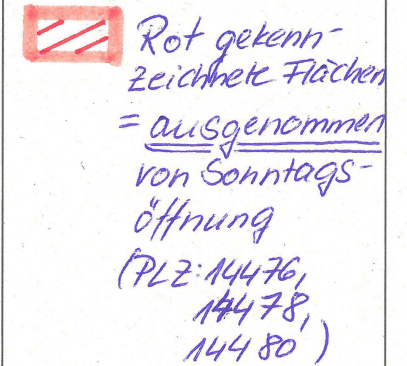 Rot gekenn-
zeichnete Flächen
= ausgenommen
von Sonntags-
öffnung
(PLZ: 14476,
14478,
14480)